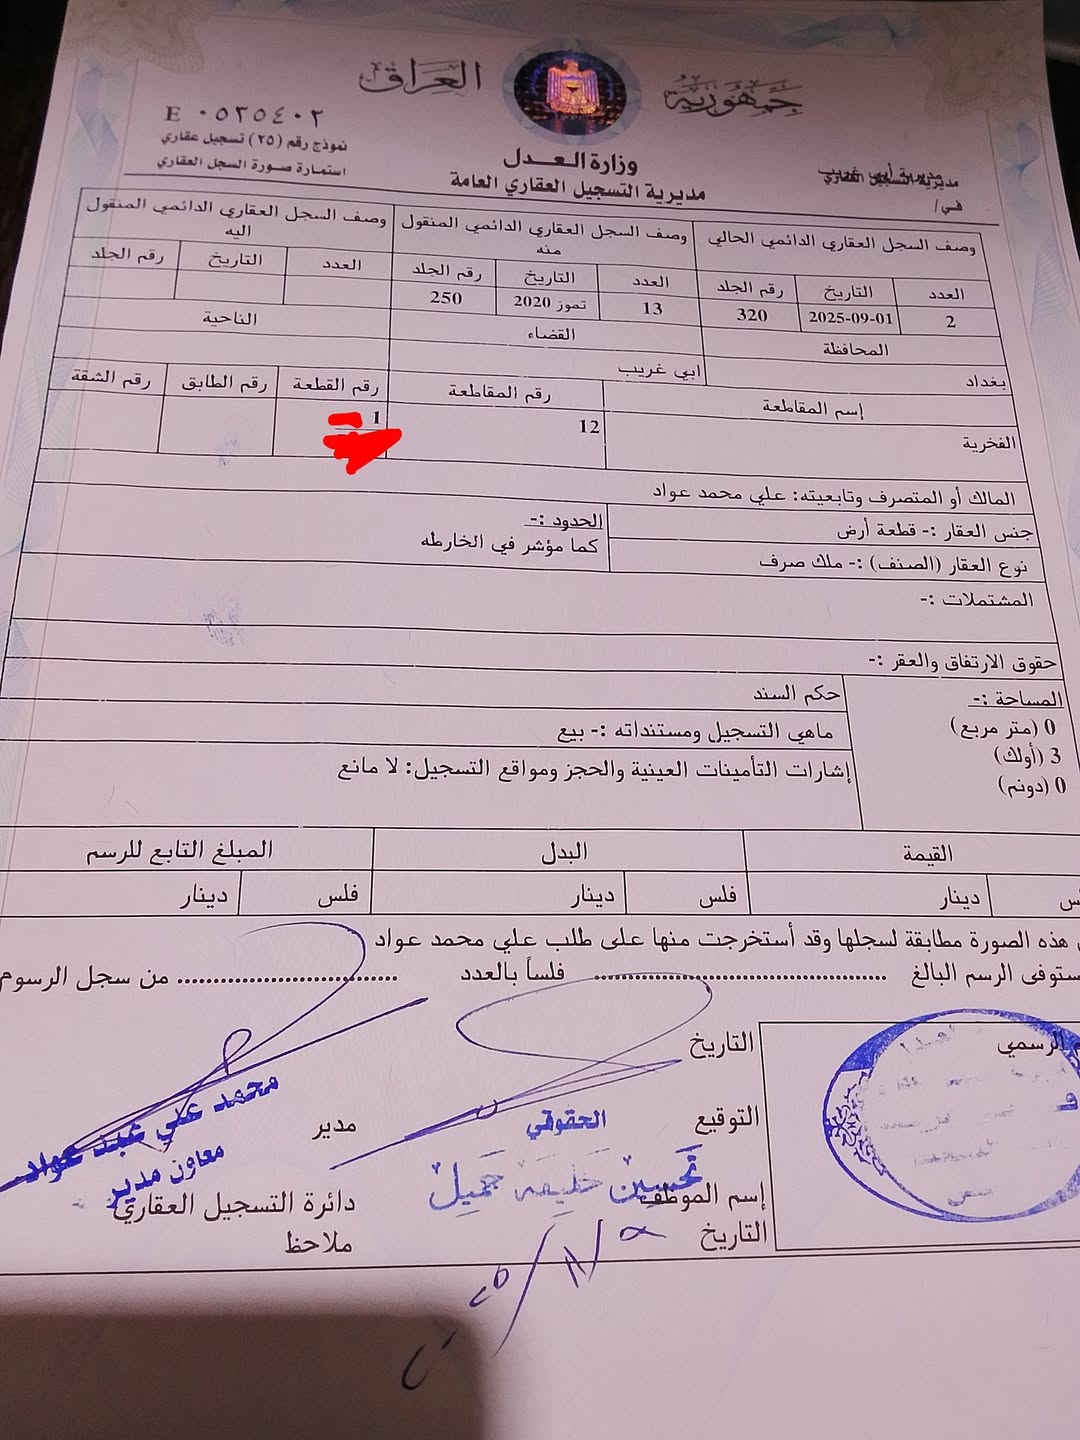 جمهورية العراق
E ٠٥٢٥٤٠٢
نموذج رقم (٢٥) تسجيل عقاري
استمارة صورة السجل العقاري
وزارة العدل
مديرية التسجيل العقاري العامة
مديرية التسجيل العقاري
في/
وصف السجل العقاري الدائمي الحالي
وصف السجل العقاري الدائمي المنقول منه
وصف السجل العقاري الدائمي المنقول اليه
العدد التاريخ رقم الجلد العدد التاريخ رقم الجلد العدد التاريخ رقم الجلد
2 2025-09-01 320 13 تموز 2020 250
المحافظة القضاء الناحية
بغداد ابي غريب
إسم المقاطعة رقم المقاطعة رقم القطعة رقم الطابق رقم الشقة
الفخرية 12 1
المالك أو المتصرف وتابعيته: علي محمد عواد
جنس العقار :- قطعة أرض
نوع العقار (الصنف) :- ملك صرف
الحدود :-
كما مؤشر في الخارطه
المشتملات :-
حقوق الارتفاق والعقر :-
المساحة :-
0 (متر مربع)
3 (أولك)
0 (دونم)
حكم السند
ماهي التسجيل ومستنداته :- بيع
إشارات التأمينات العينية والحجز ومواقع التسجيل: لا مانع
القيمة البدل المبلغ التابع للرسم
دينار فلس دينار فلس دينار
هذه الصورة مطابقة لسجلها وقد أستخرجت منها على طلب علي محمد عواد
ستوفى الرسم البالغ ........ فلساً بالعدد ........ من سجل الرسوم
الرسمي
التاريخ
التوقيع
الحقوقي
إسم الموظف
تحسين خليفه جميل
التاريخ
مدير
محمد علي عبد عواد
معاون مدير
دائرة التسجيل العقاري
ملاحظ